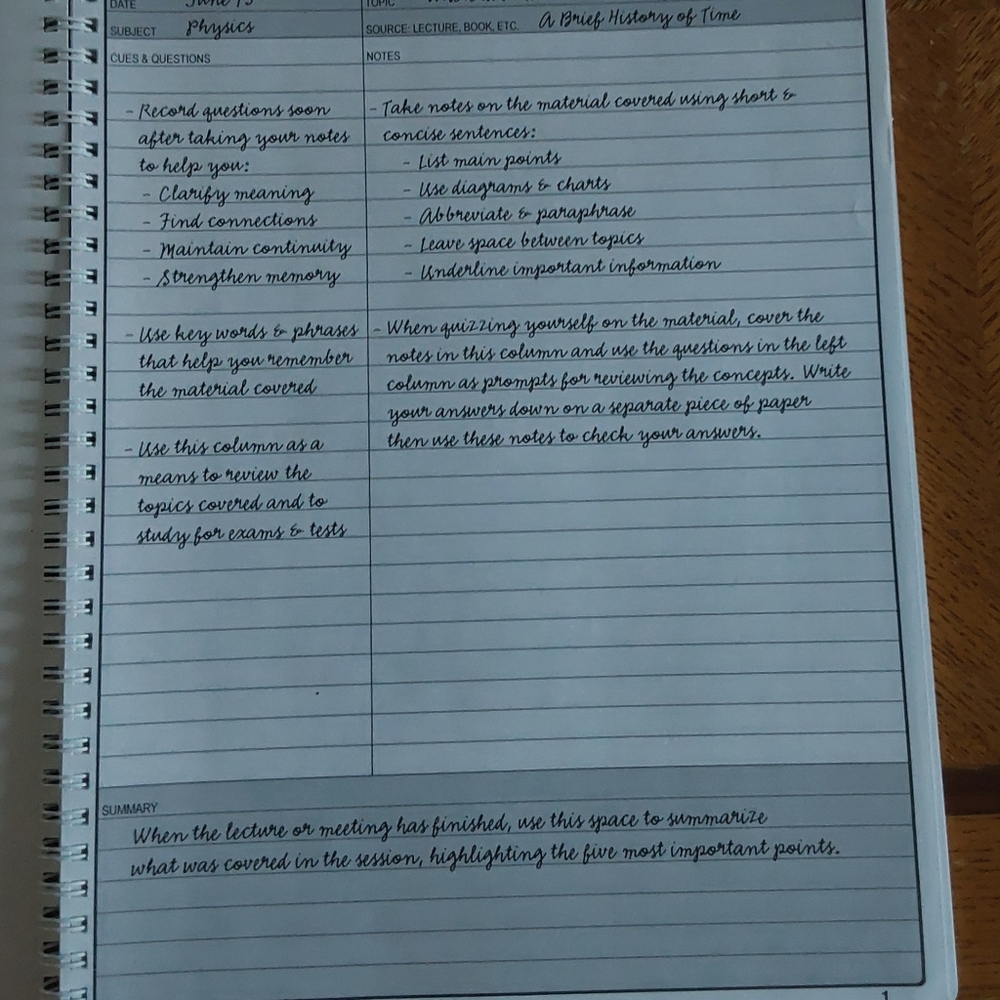 DATE
TOPIC
SUBJECT Physics
SOURCE: LECTURE, BOOK, ETC. A Brief History of Time
CUES & QUESTIONS
- Record questions soon
after taking your notes
to help you:
- Clarify meaning
- Find connections
- Maintain continuity
- Strengthen memory
- Use key words & phrases
that help you remember
the material covered
- Use this column as a
means to review the
topics covered and to
study for exams & tests
NOTES
- Take notes on the material covered using short &
concise sentences:
- List main points
- Use diagrams & charts
- Abbreviate & paraphrase
- Leave space between topics
- Underline important information
- When quizzing yourself on the material, cover the
notes in this column and use the questions in the left
column as prompts for reviewing the concepts. Write
your answers down on a separate piece of paper
then use these notes to check your answers.
SUMMARY
When the lecture or meeting has finished, use this space to summarize
what was covered in the session, highlighting the five most important points.
1